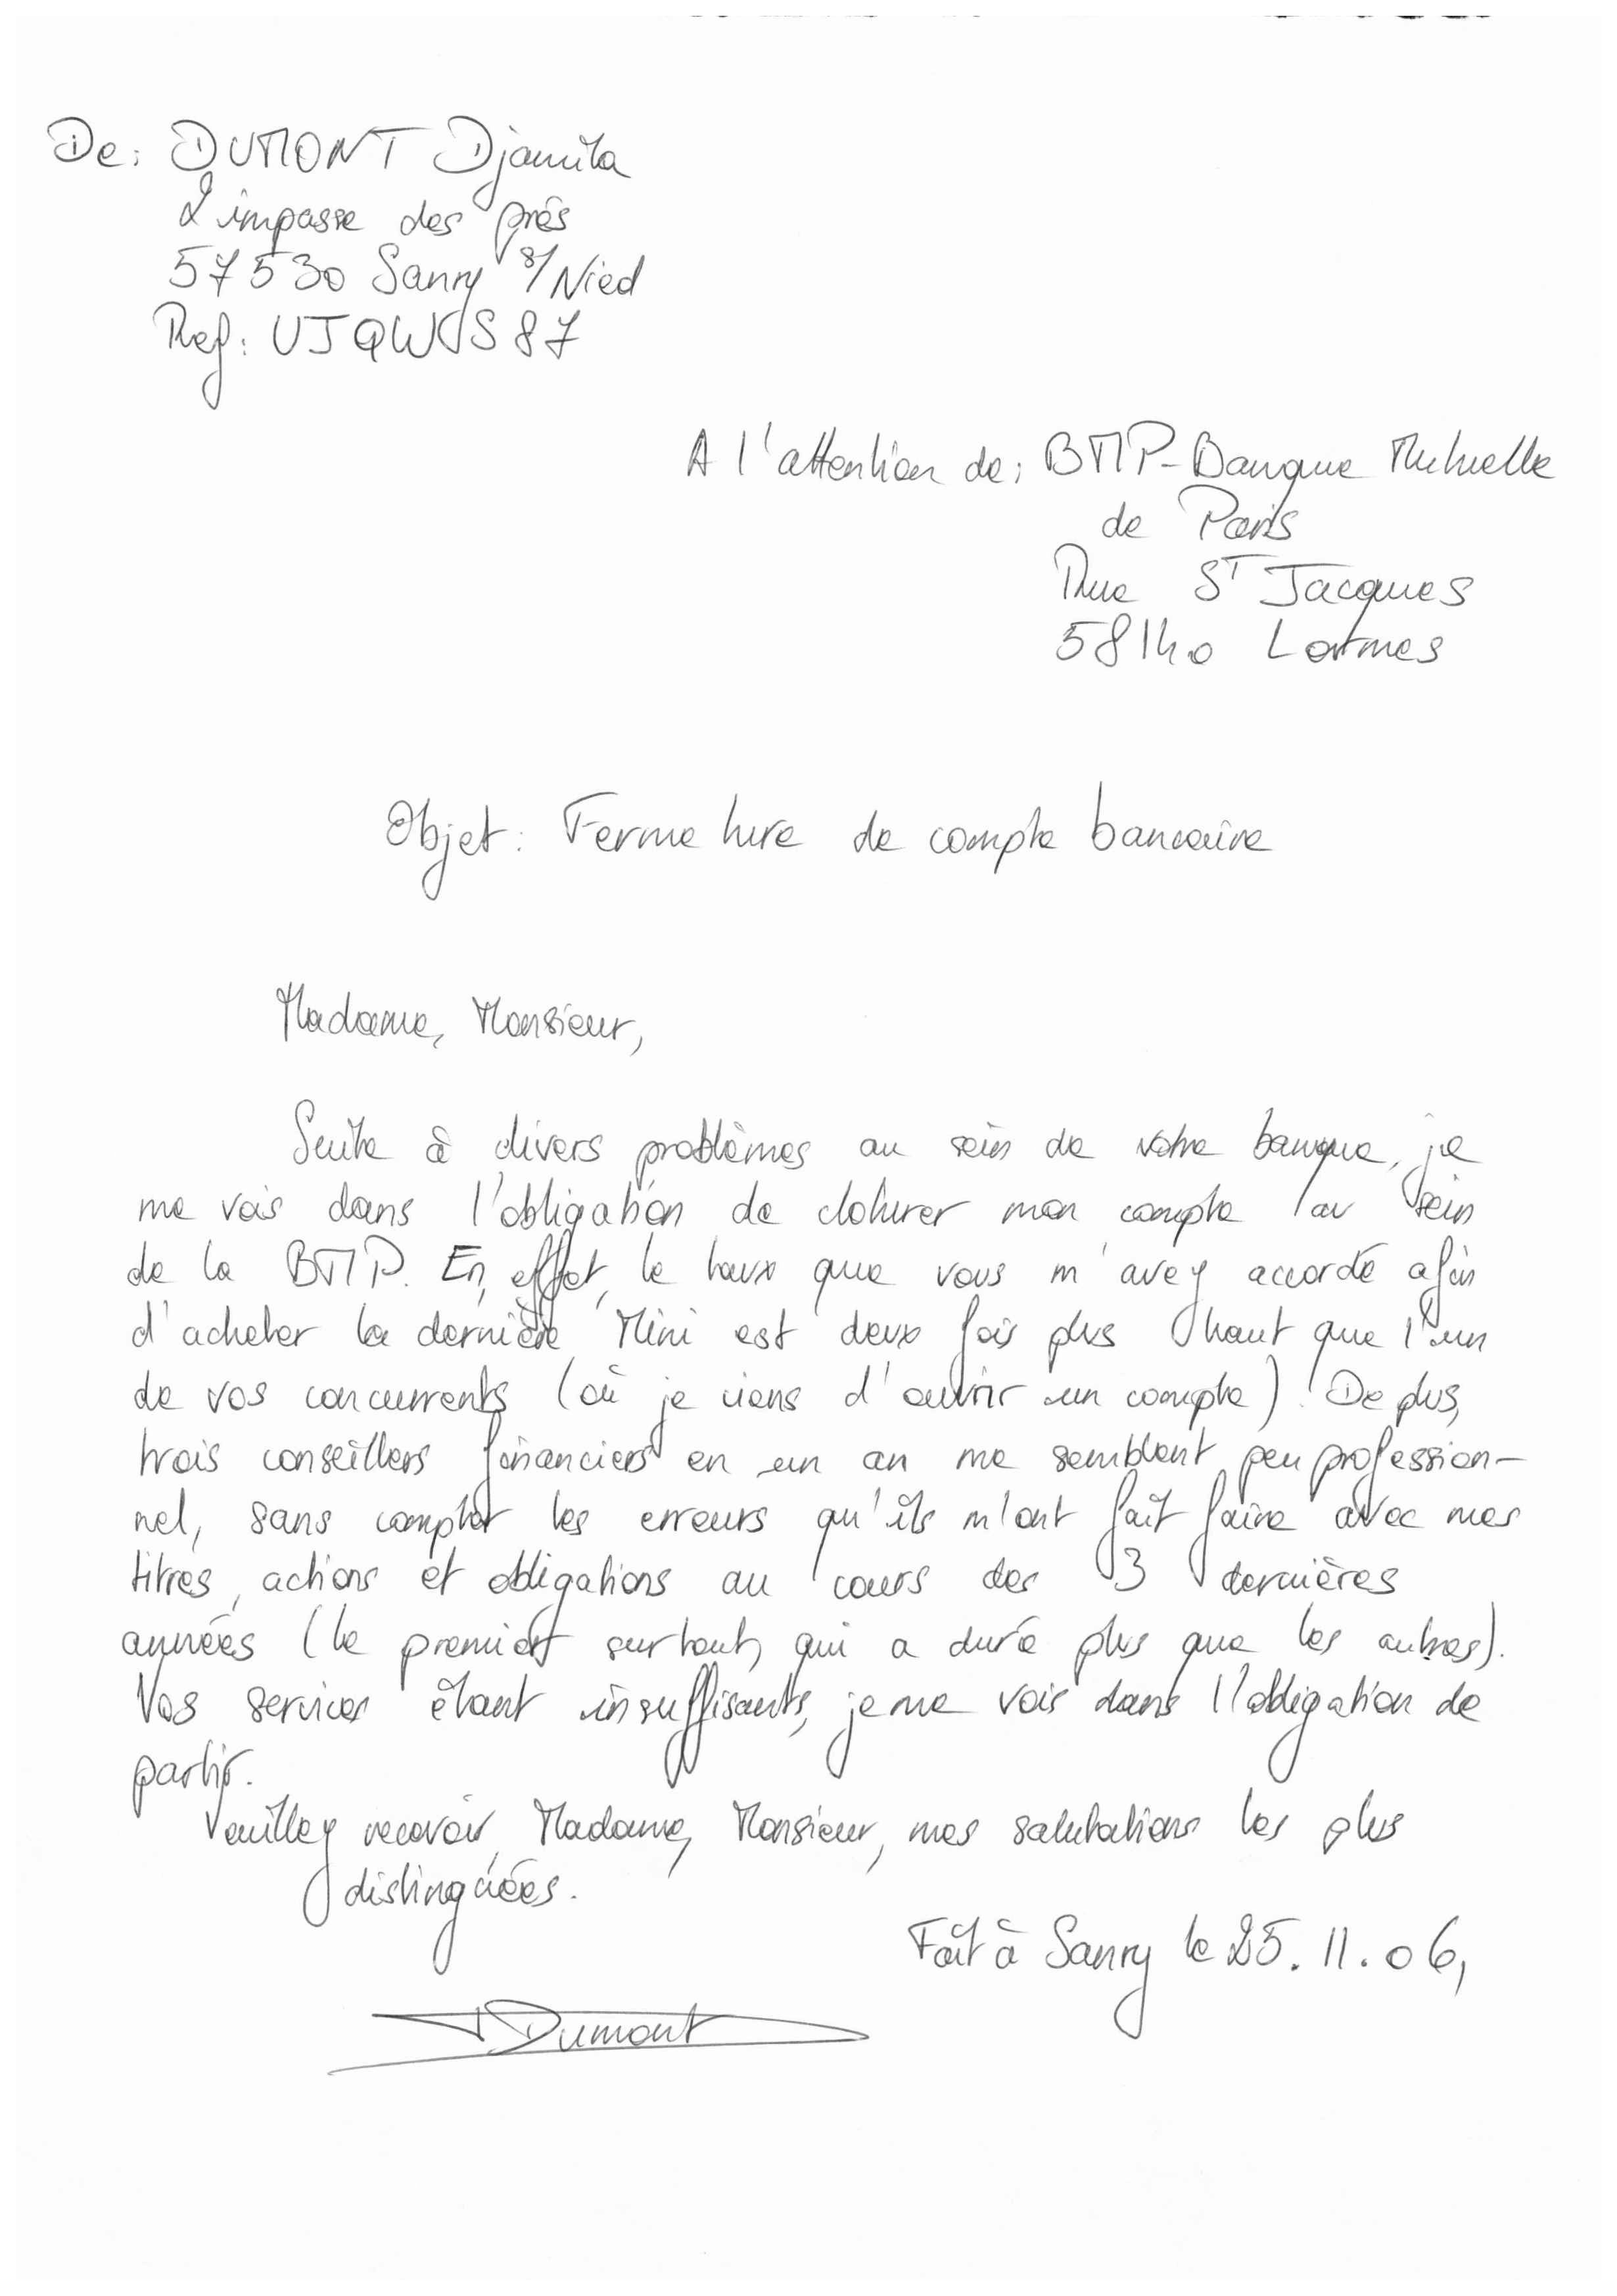 De : DUMONT Djamila
2 impasse des prés
57530 Sanry s/Nied
Ref : UJQWS87
A l'attention de : BMP-Banque Mutuelle
de Paris
Rue St Jacques
58140 Lormes
Objet : Fermeture de compte bancaire
Madame, Monsieur,
Suite à divers problèmes au sein de votre banque, je
me vois dans l'obligation de cloturer mon compte au sein
de la BMP. En effet, le taux que vous m'avez accordé afin
d'acheter la dernière Mini est deux fois plus haut que l'un
de vos concurrents (où je viens d'ouvrir un compte). De plus,
trois conseillers financiers en un an me semblent peu profession-
nel, sans compter les erreurs qu'ils m'ont fait faire avec mes
titres, actions et obligations au cours des 3 dernières
années (le premier surtout, qui a duré plus que les autres).
Vos services étant insuffisants, je me vois dans l'obligation de
partir.
Veuillez recevoir, Madame, Monsieur, mes salutations les plus
distinguées.
Fait à Sanry le 25.11.06,
Dumont